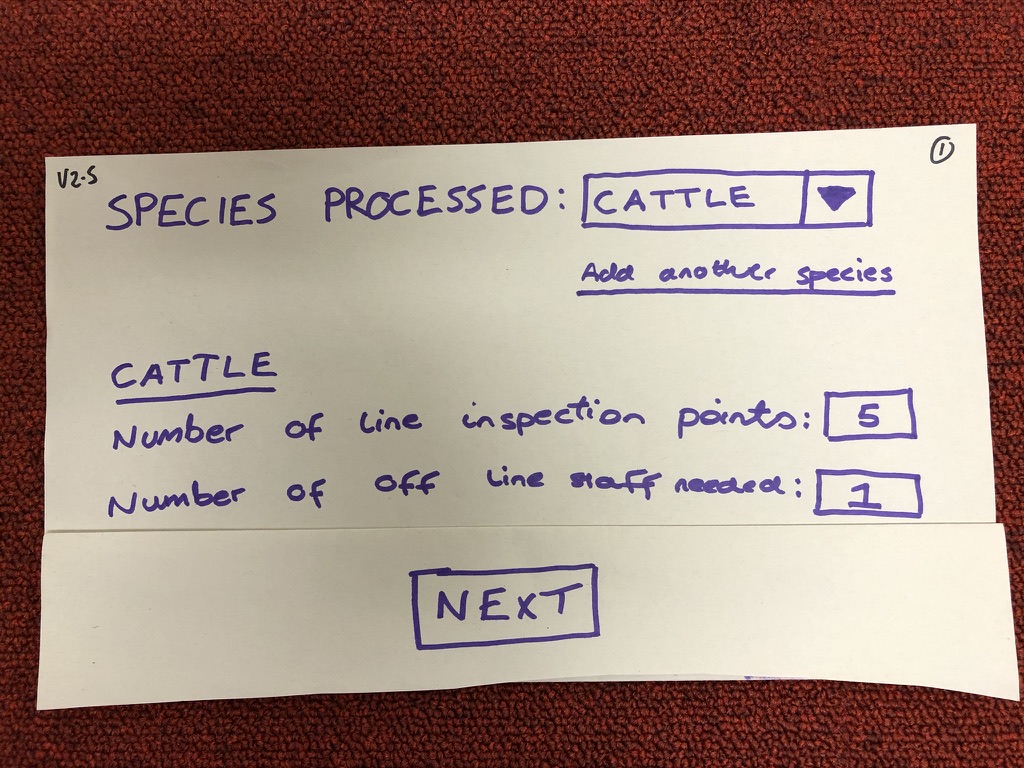 V2.5
1
SPECIES PROCESSED: CATTLE
Add another species
CATTLE
Number of line inspection points: 5
Number of off line staff needed: 1
NEXT